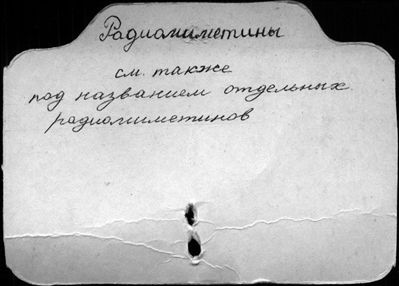 Радиомиметины
см. также
под названием отдельных
радиомиметинов